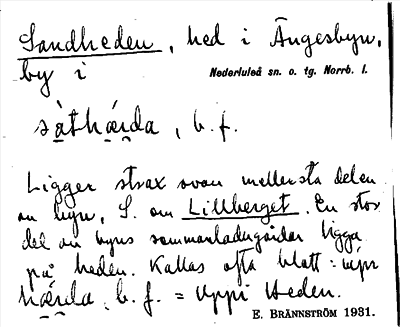 Sandheden, hed i Ängesbyn,
by i Nederluleå sn. o. tg. Norrb. l.
sàthá̤ṛda, b. f.
Ligger strax ovan mellersta delen
av byn, S. om Lillberget. En stor
del av byns sommarladugårdar ligga
på heden. Kallas ofta blott: upi
há̤ṛda, b. f. = Uppi Heden.
E. BRÄNNSTRÖM 1931.